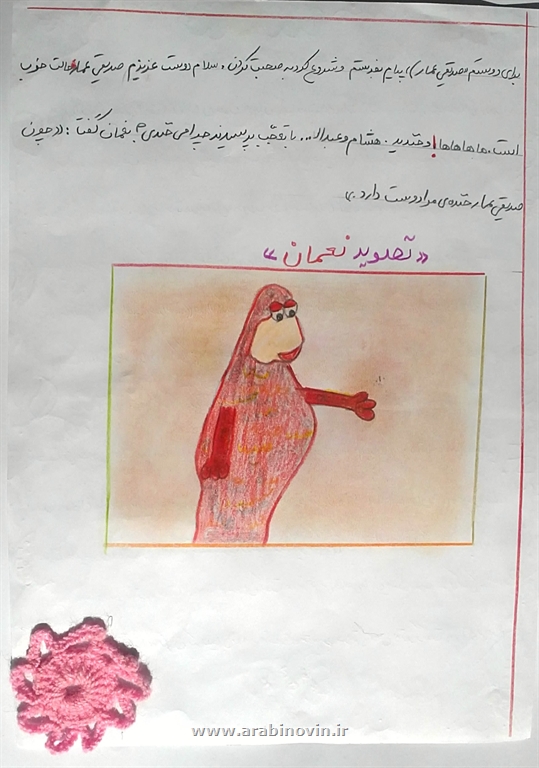 برای دوستم «صدیقی عمار»، پیام بفرستم و شروع کرد به صحبت کردن. سلام دوست عزیزم صدیقی عمار حالت خوب
است. ها ها ها ها! و خندید. هشام و عبدالـ... با تعجّب پرسیدند چرا می خندی؟ نعمان گفتا: «چون
صدیقی عمار خنده ی مرا دوست دارد.»
«تصویر نعمان»
www.arabinovin.ir